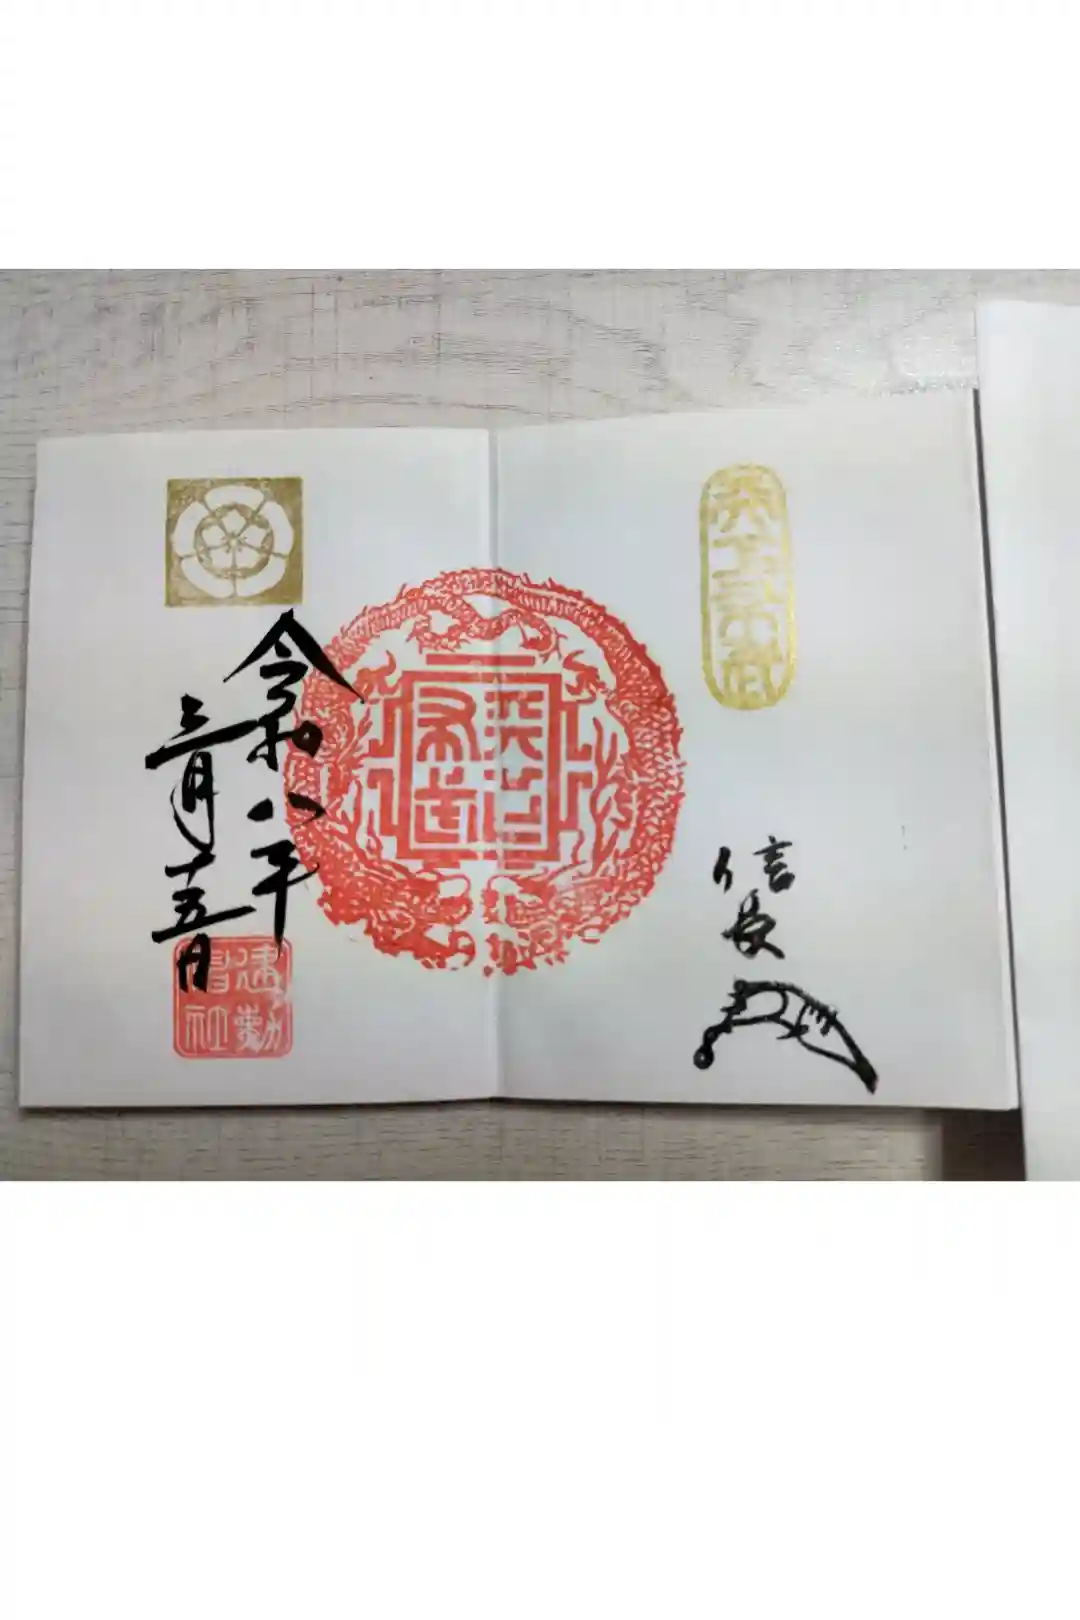 天下布武
信長
天下
布武
令和八年
三月十五日
建勲
神社